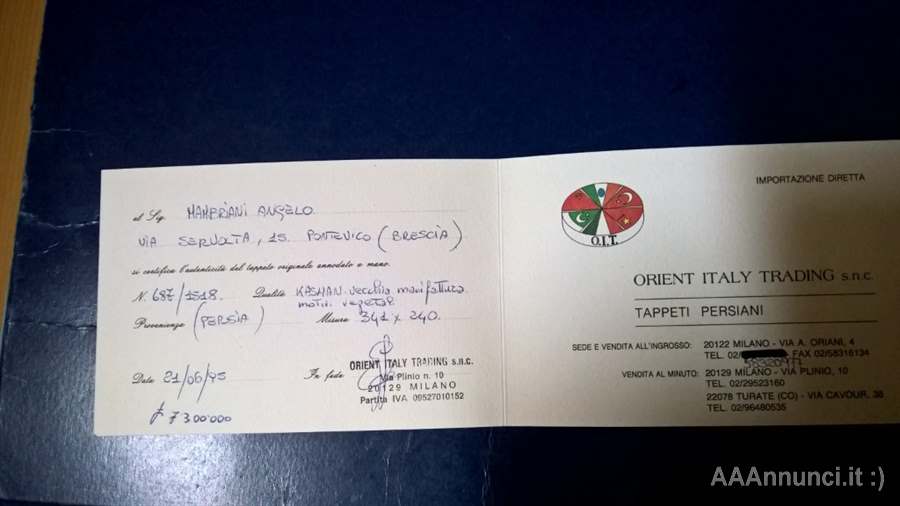 al Sig. MAMPRIANI ANGELO
VIA SERVOLTA, 15. PONTEVICO (BRESCIA)
si certifica l'autenticità del tappeto originale annodato a mano.
N. 687/1518. Qualità KASHAN vecchia manifattura
motiv. vegetal
Provenienza (PERSIA) Misura 341 x 240.
Data 21/06/95 In fede
ORIENT ITALY TRADING s.n.c.
Via Plinio n. 10
20129 MILANO
Partita IVA 09527010152
£ 7300'000
IMPORTAZIONE DIRETTA
O.I.T.
ORIENT ITALY TRADING s.n.c.
TAPPETI PERSIANI
SEDE E VENDITA ALL'INGROSSO: 20122 MILANO - VIA A. ORIANI, 4
TEL. 02/ FAX 02/58316134
VENDITA AL MINUTO: 20129 MILANO - VIA PLINIO, 10
TEL. 02/29523160
22078 TURATE (CO) - VIA CAVOUR, 38
TEL. 02/96480535
AAAnnunci.it :)